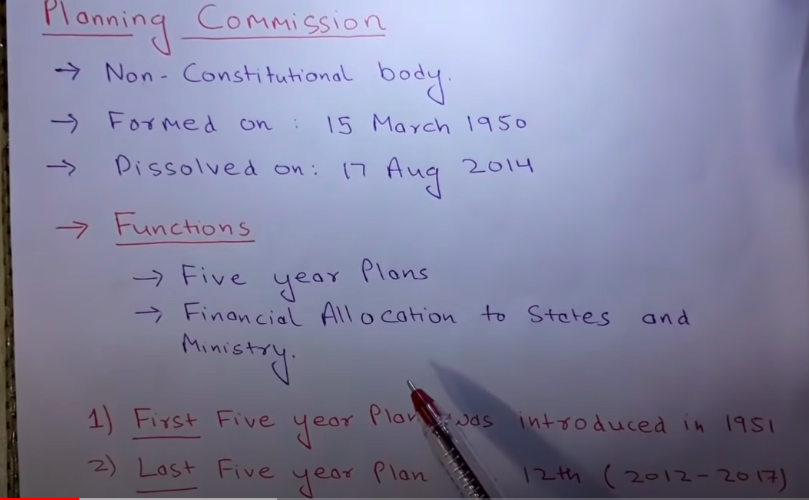 Planning Commission
→ Non-Constitutional body.
→ Formed on : 15 March 1950
→ Dissolved on: 17 Aug 2014
→ Functions
→ Five year Plans
→ Financial Allocation to States and
Ministry.
1) First Five year Plan was introduced in 1951
2) Last Five year Plan 12th (2012-2017)